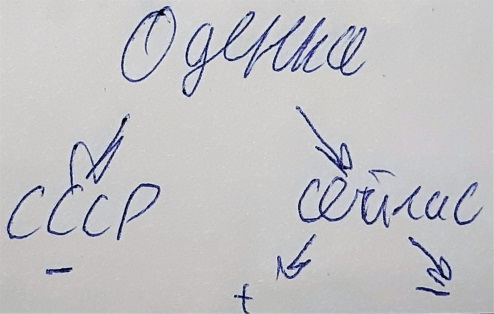 Оценка
СССР сейчас
- + =